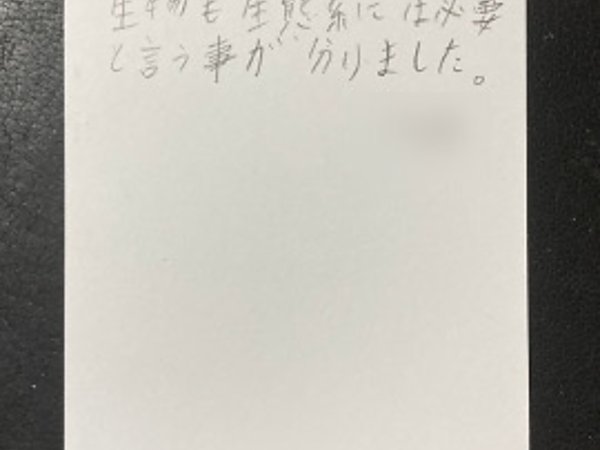 生物も生態系には必要
と言う事が分りました。